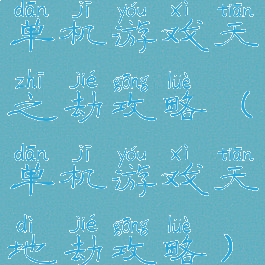 dān jī yóu xì tiān
单机游戏天
zhī jié gōng lüè
之劫攻略（
dān jī yóu xì tiān
单机游戏天
dì jié gōng lüè
地劫攻略）